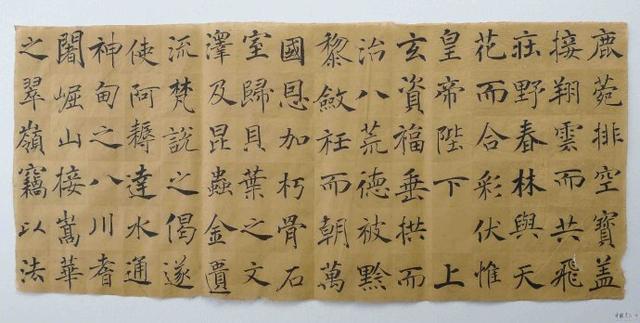 鹿菀排空寶蓋
接翔雲而共飛
莊野春林與天
花而合彩伏惟
皇帝陛下 上
玄資福垂拱而
治八荒德被黔
黎斂衽而朝萬
國恩加朽骨石
室歸貝葉之文
澤及昆蟲金匱
流梵說之偈遂
使阿耨達水通
神甸之八川耆
闍崛山接嵩華
之翠嶺竊以法